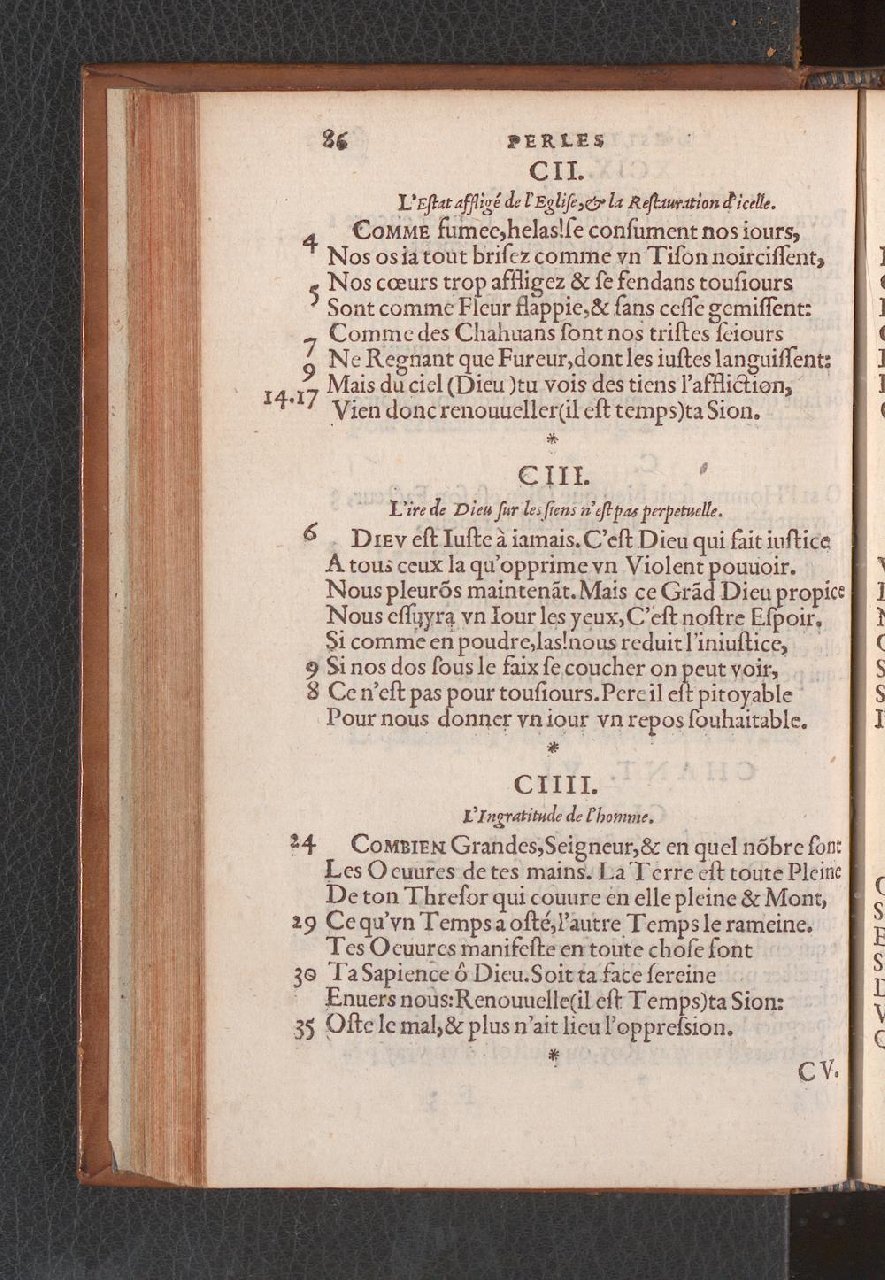 86 PERLES
CII.
L'Eſtat affligé de l'Egliſe, & la Reſtauration d'icelle.
4 COMME fumee,helas!ſe conſument nos iours,
Nos os ia tout briſez comme vn Tiſon noirciſſent,
Nos cœurs trop affligez & ſe fendans touſiours
5 Sont comme Fleur flappie,& ſans ceſſe gemiſſent:
7 Comme des Chahuans ſont nos triſtes ſeiours
9 Ne Regnant que Fureur,dont les iuſtes languiſſent:
Mais du ciel (Dieu )tu vois des tiens l'affliction,
14.17 Vien donc renouueller(il eſt temps)ta Sion.
*
CIII.
L'ire de Dieu ſur les ſiens n'eſt pas perpetuelle.
6 DIEV eſt Iuſte à iamais. C'eſt Dieu qui fait iuſtice
A tous ceux la qu'opprime vn Violent pouuoir.
Nous pleurõs maintenãt. Mais ce Grãd Dieu propice
Nous eſſuyra vn Iour les yeux, C'eſt noſtre Eſpoir,
Si comme en poudre,las!nous reduit l'iniuſtice,
9 Si nos dos ſous le faix ſe coucher on peut voir,
8 Ce n'eſt pas pour touſiours. Pere il eſt pitoyable
Pour nous donner vn iour vn repos ſouhaitable.
*
CIIII.
L'Ingratitude de l'homme.
24 COMBIEN Grandes,Seigneur,& en quel nõbre ſont
Les Oeuures de tes mains. La Terre eſt toute Pleine
De ton Threſor qui couure en elle pleine & Mont,
29 Ce qu'vn Temps a oſté,l'autre Temps le rameine.
Tes Oeuures manifeſte en toute choſe ſont
30 Ta Sapience ô Dieu. Soit ta face ſereine
Enuers nous: Renouuelle(il eſt Temps)ta Sion:
35 Oſte le mal,& plus n'ait lieu l'oppreſsion.
*
CV.